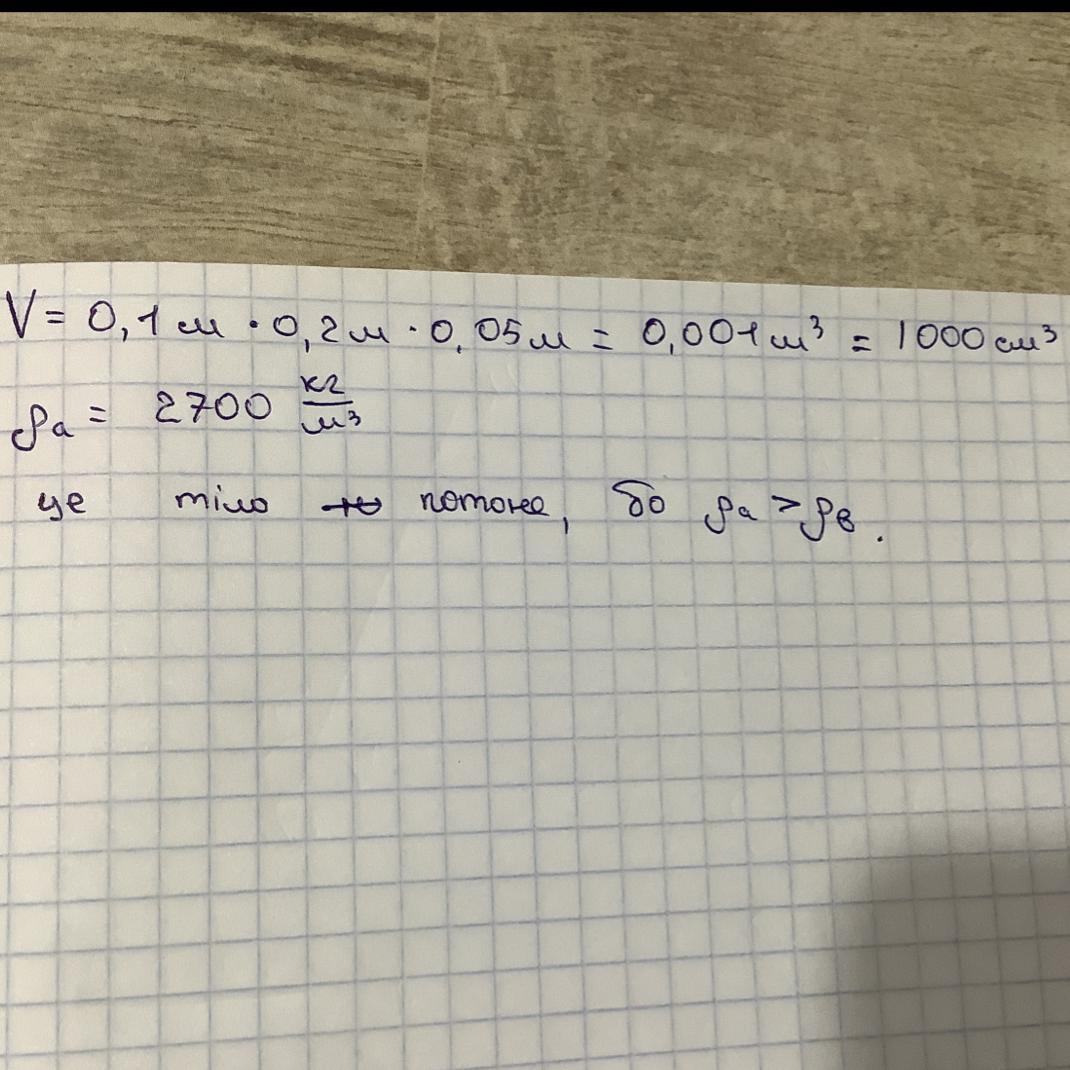 V = 0,1 м · 0,2 м · 0,05 м = 0,001 м³ = 1000 см³
ρа = 2700 кг/м³
це тіло потоне, бо ρа > ρв.